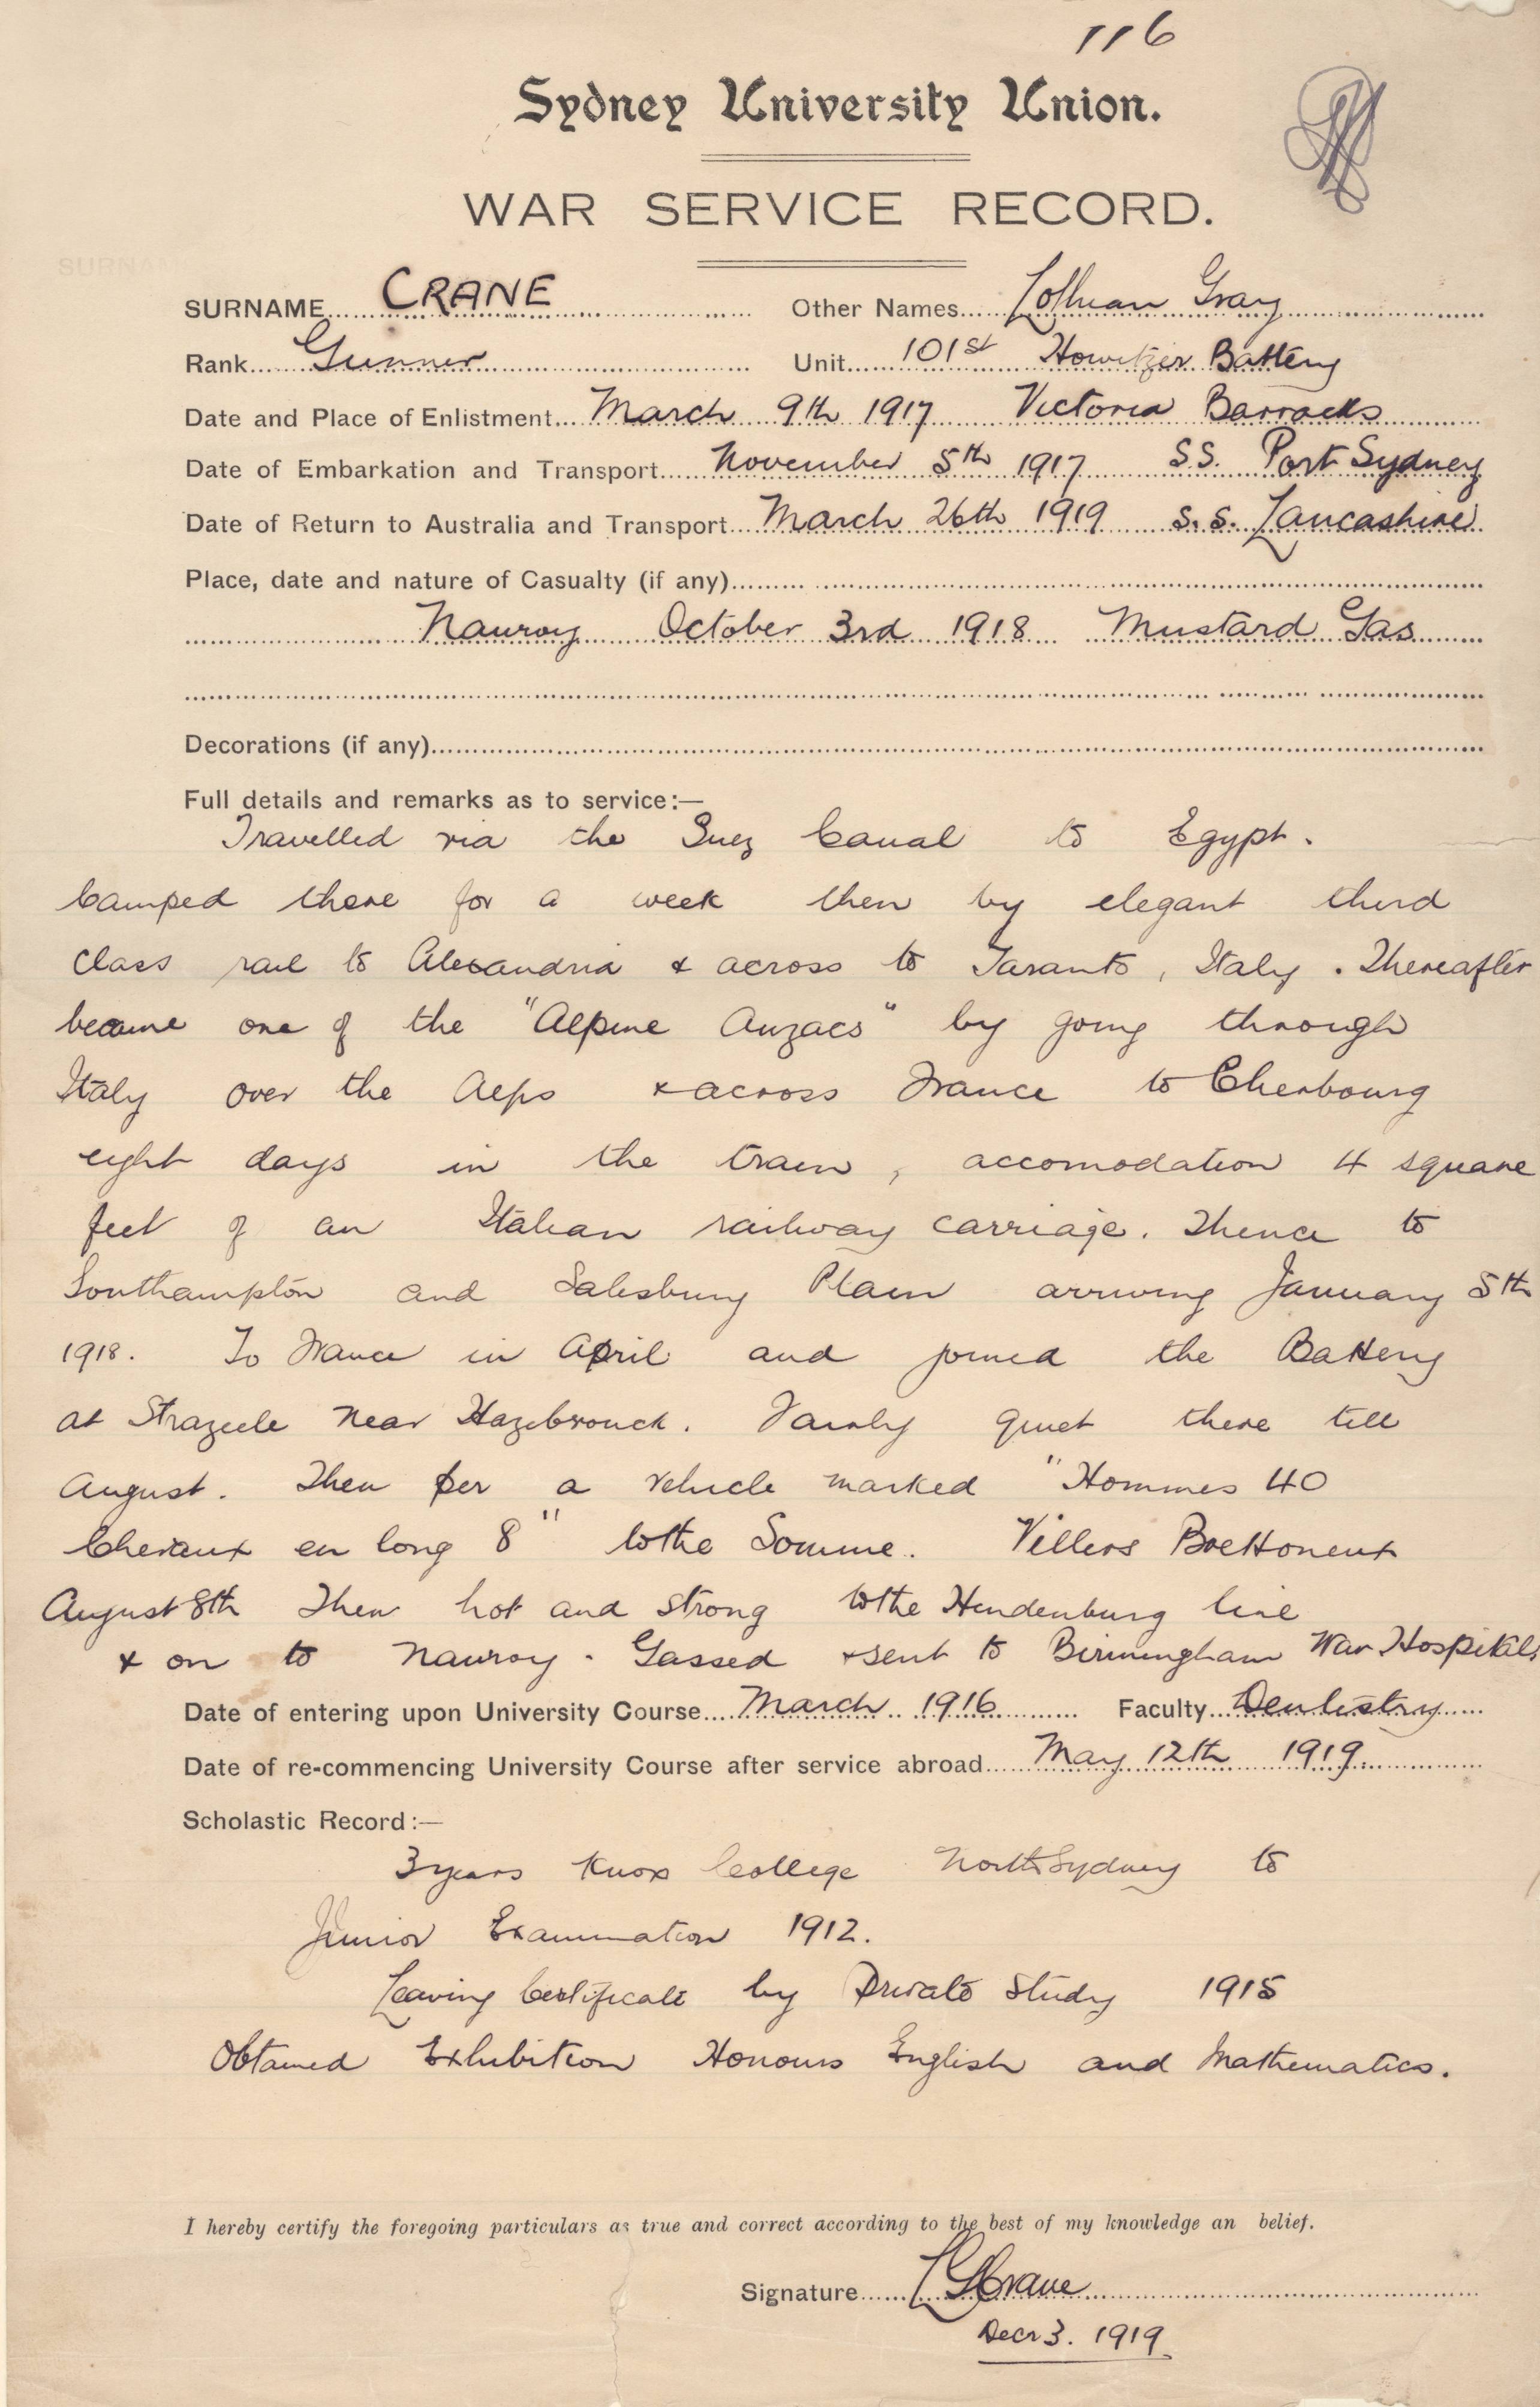 116
Sydney University Union.
WAR SERVICE RECORD.
SURNAME CRANE Other Names Lothian Gray
Rank Gunner Unit 101st Howitzer Battery
Date and Place of Enlistment March 9th 1917 Victoria Barracks
Date of Embarkation and Transport November 5th 1917 SS. Port Sydney
Date of Return to Australia and Transport March 26th 1919 S.S. Lancashire
Place, date and nature of Casualty (if any)
Nauroy October 3rd 1918 Mustard Gas
Decorations (if any)
Full details and remarks as to service:—
Travelled via the Suez Canal to Egypt.
Camped there for a week then by elegant third
class rail to Alexandria & across to Taranto, Italy. Thereafter
became one of the "Alpine Anzacs" by going through
Italy over the Alps & across France to Cherbourg
eight days in the train, accomodation 4 square
feet of an Italian railway carriage. Thence to
Southampton and Salesbury Plain arriving January 5th
1918. To France in April and joined the Battery
at Strazeele near Hazebrouck. Fairly quiet there till
August. Then per a vehicle marked "Hommes 40
Chevaux en long 8" to the Somme. Villers Brettoneux
August 8th Then hot and strong to the Hindenburg line
& on to Nauroy. Gassed & sent to Birmingham War Hospital.
Date of entering upon University Course March 1916 Faculty Dentistry
Date of re-commencing University Course after service abroad May 12th 1919
Scholastic Record:—
3 years Knox College North Sydney to
Junior Examination 1912.
Leaving Certificate by Private Study 1915
Obtained Exhibition Honours English and Mathematics.
I hereby certify the foregoing particulars as true and correct according to the best of my knowledge an belief.
Signature L G Crane
Decr 3. 1919